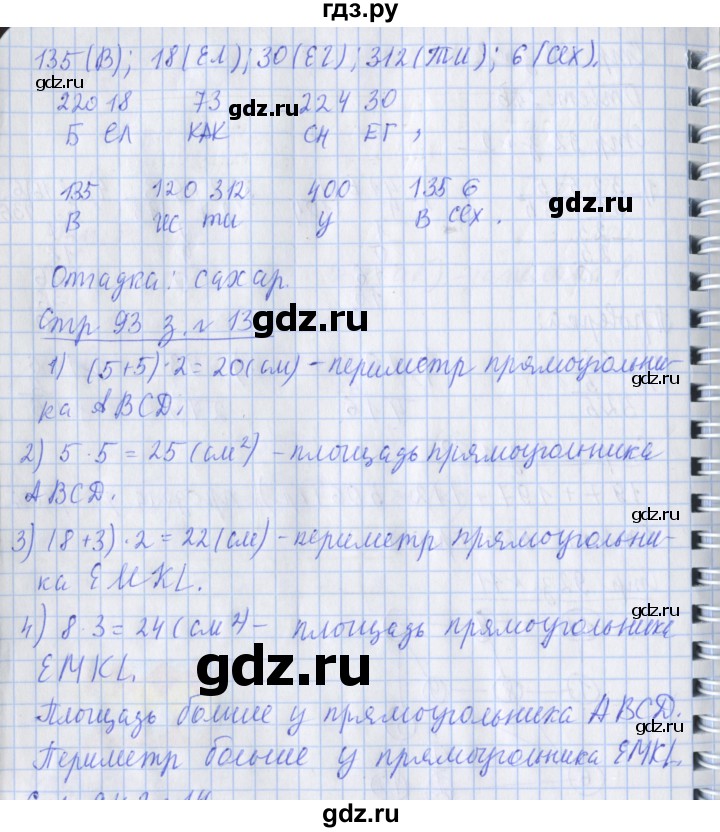 гдз.ру
135(В); 18(ЕЛ); 30(ЕГ); 312(ТИ); 6(сех).
gdz.ru gdz.ru
220 18 73 224 30
Б ЕЛ КАК СН ЕГ,
135 120 312 400 135 6
В ис ти у В сех.
gdz.ru
Отгадка: сахар.
gdz.ru
Стр 93 з. № 13
gdz.ru
1) (5+5)·2=20(см) – периметр прямоугольни-
ка ABCD.
gdz.ru
2) 5·5=25(см²) – площадь прямоугольника
ABCD.
gdz.ru
3) (8+3)·2=22(см) – периметр прямоугольни-
ка EMKL.
gdz.ru
4) 8·3=24(см²– площадь прямоугольника
EMKL.
gdz.ru gdz.ru
Площадь больше у прямоугольника ABCD.
Периметр больше у прямоугольника EMKL.
gdz.ru